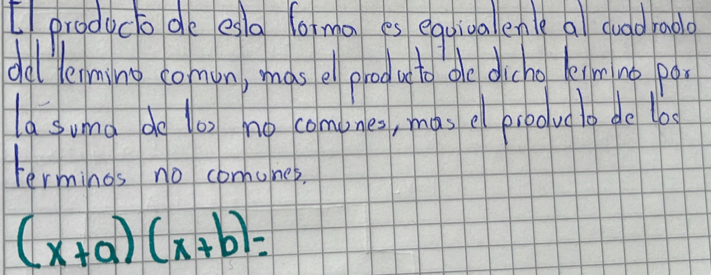 El producto de esta forma es equivalente al cuadrado
del termino comun, mas el producto de dicho termino por
la suma de los no comunes, mas el producto de los
terminos no comunes.
(x+a)(x+b)=